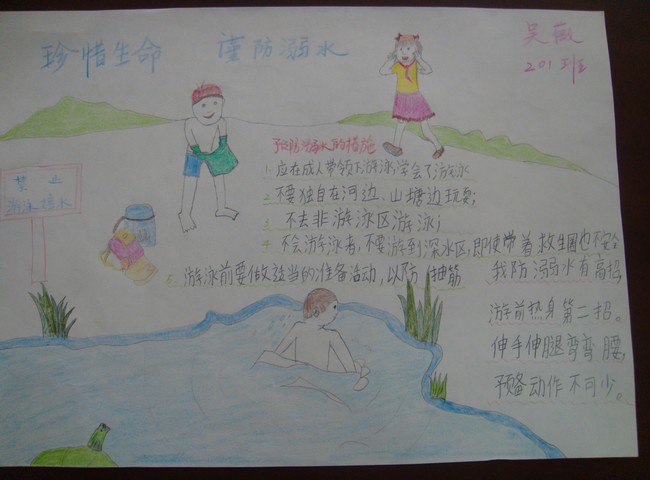 珍惜生命 谨防溺水
吴薇
201班
预防溺水的措施
1. 应在成人带领下游泳学会了游泳
2. 不要独自在河边、山塘边玩耍;
3. 不去非游泳区游泳;
4. 不会游泳者,不要游到深水区,即使带着救生圈也不安全
5. 游泳前要做适当的准备活动,以防抽筋
禁止
游泳
我防溺水有高招,
游前热身第二招。
伸手伸腿弯弯腰,
预备动作不可少。